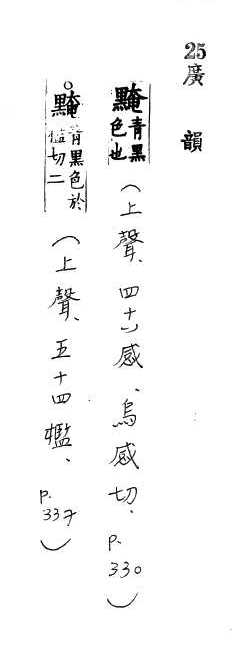 25廣韻
黤青黑色也(上聲、四十八感、烏感切、p.330)
○黤青黑色於檻切二(上聲、五十四檻、p.337)